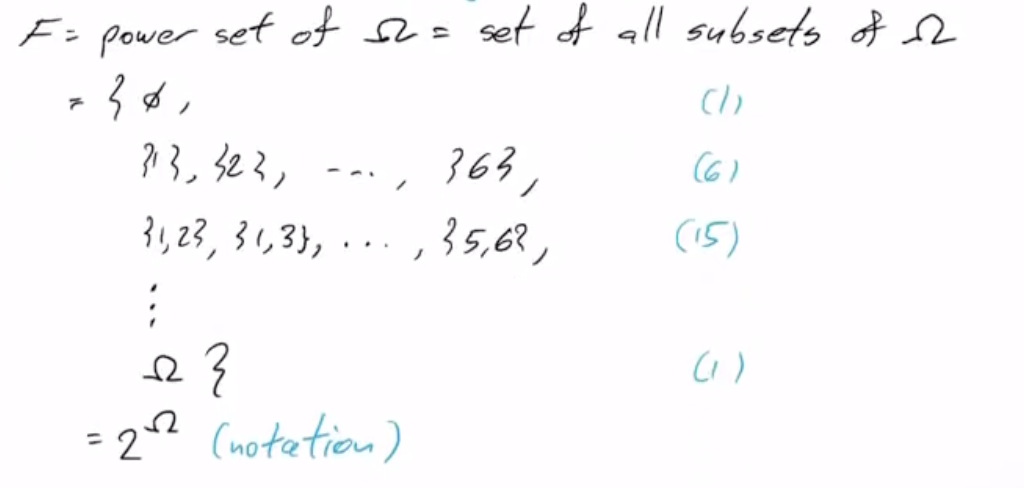 F = power set of Ω = set of all subsets of Ω
= { ∅, (1)
{1}, {2}, ---, {6}, (6)
{1,2}, {1,3}, ..., {5,6}, (15)
⋮
Ω } (1)
= 2^Ω (notation)